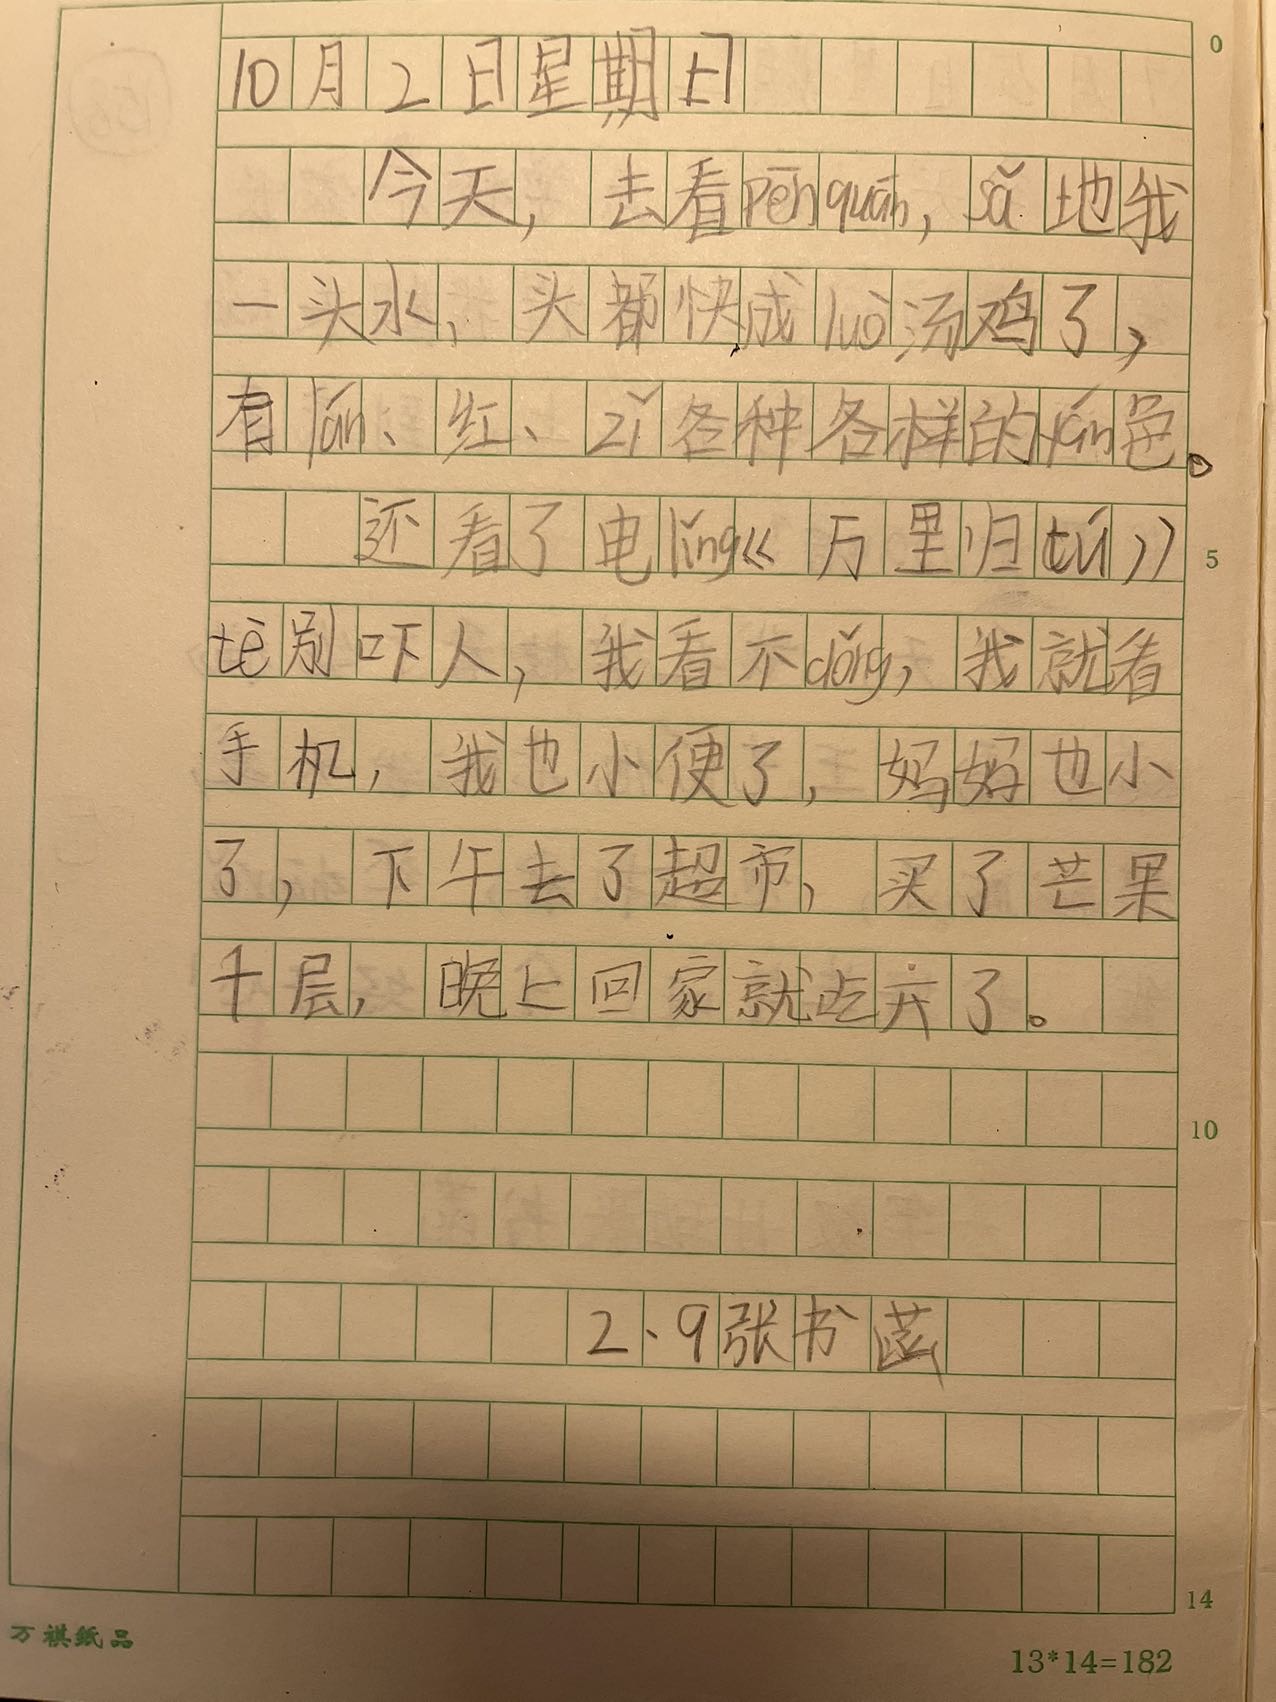 0
10月2日星期日
今天,去看pēnquán,sǎ地我
一头水,头都快成luò汤鸡了,
有lán、红、zǐ各种各样的yán色。
还看了电lǐng《万里归tú》 5
tè别吓人,我看不dǒng,我就看
手机,我也小便了,妈妈也小
了,下午去了超市,买了芒果
千层,晚上回家就吃完了。
10
2、9张书菡
14
万祺纸品
13*14=182